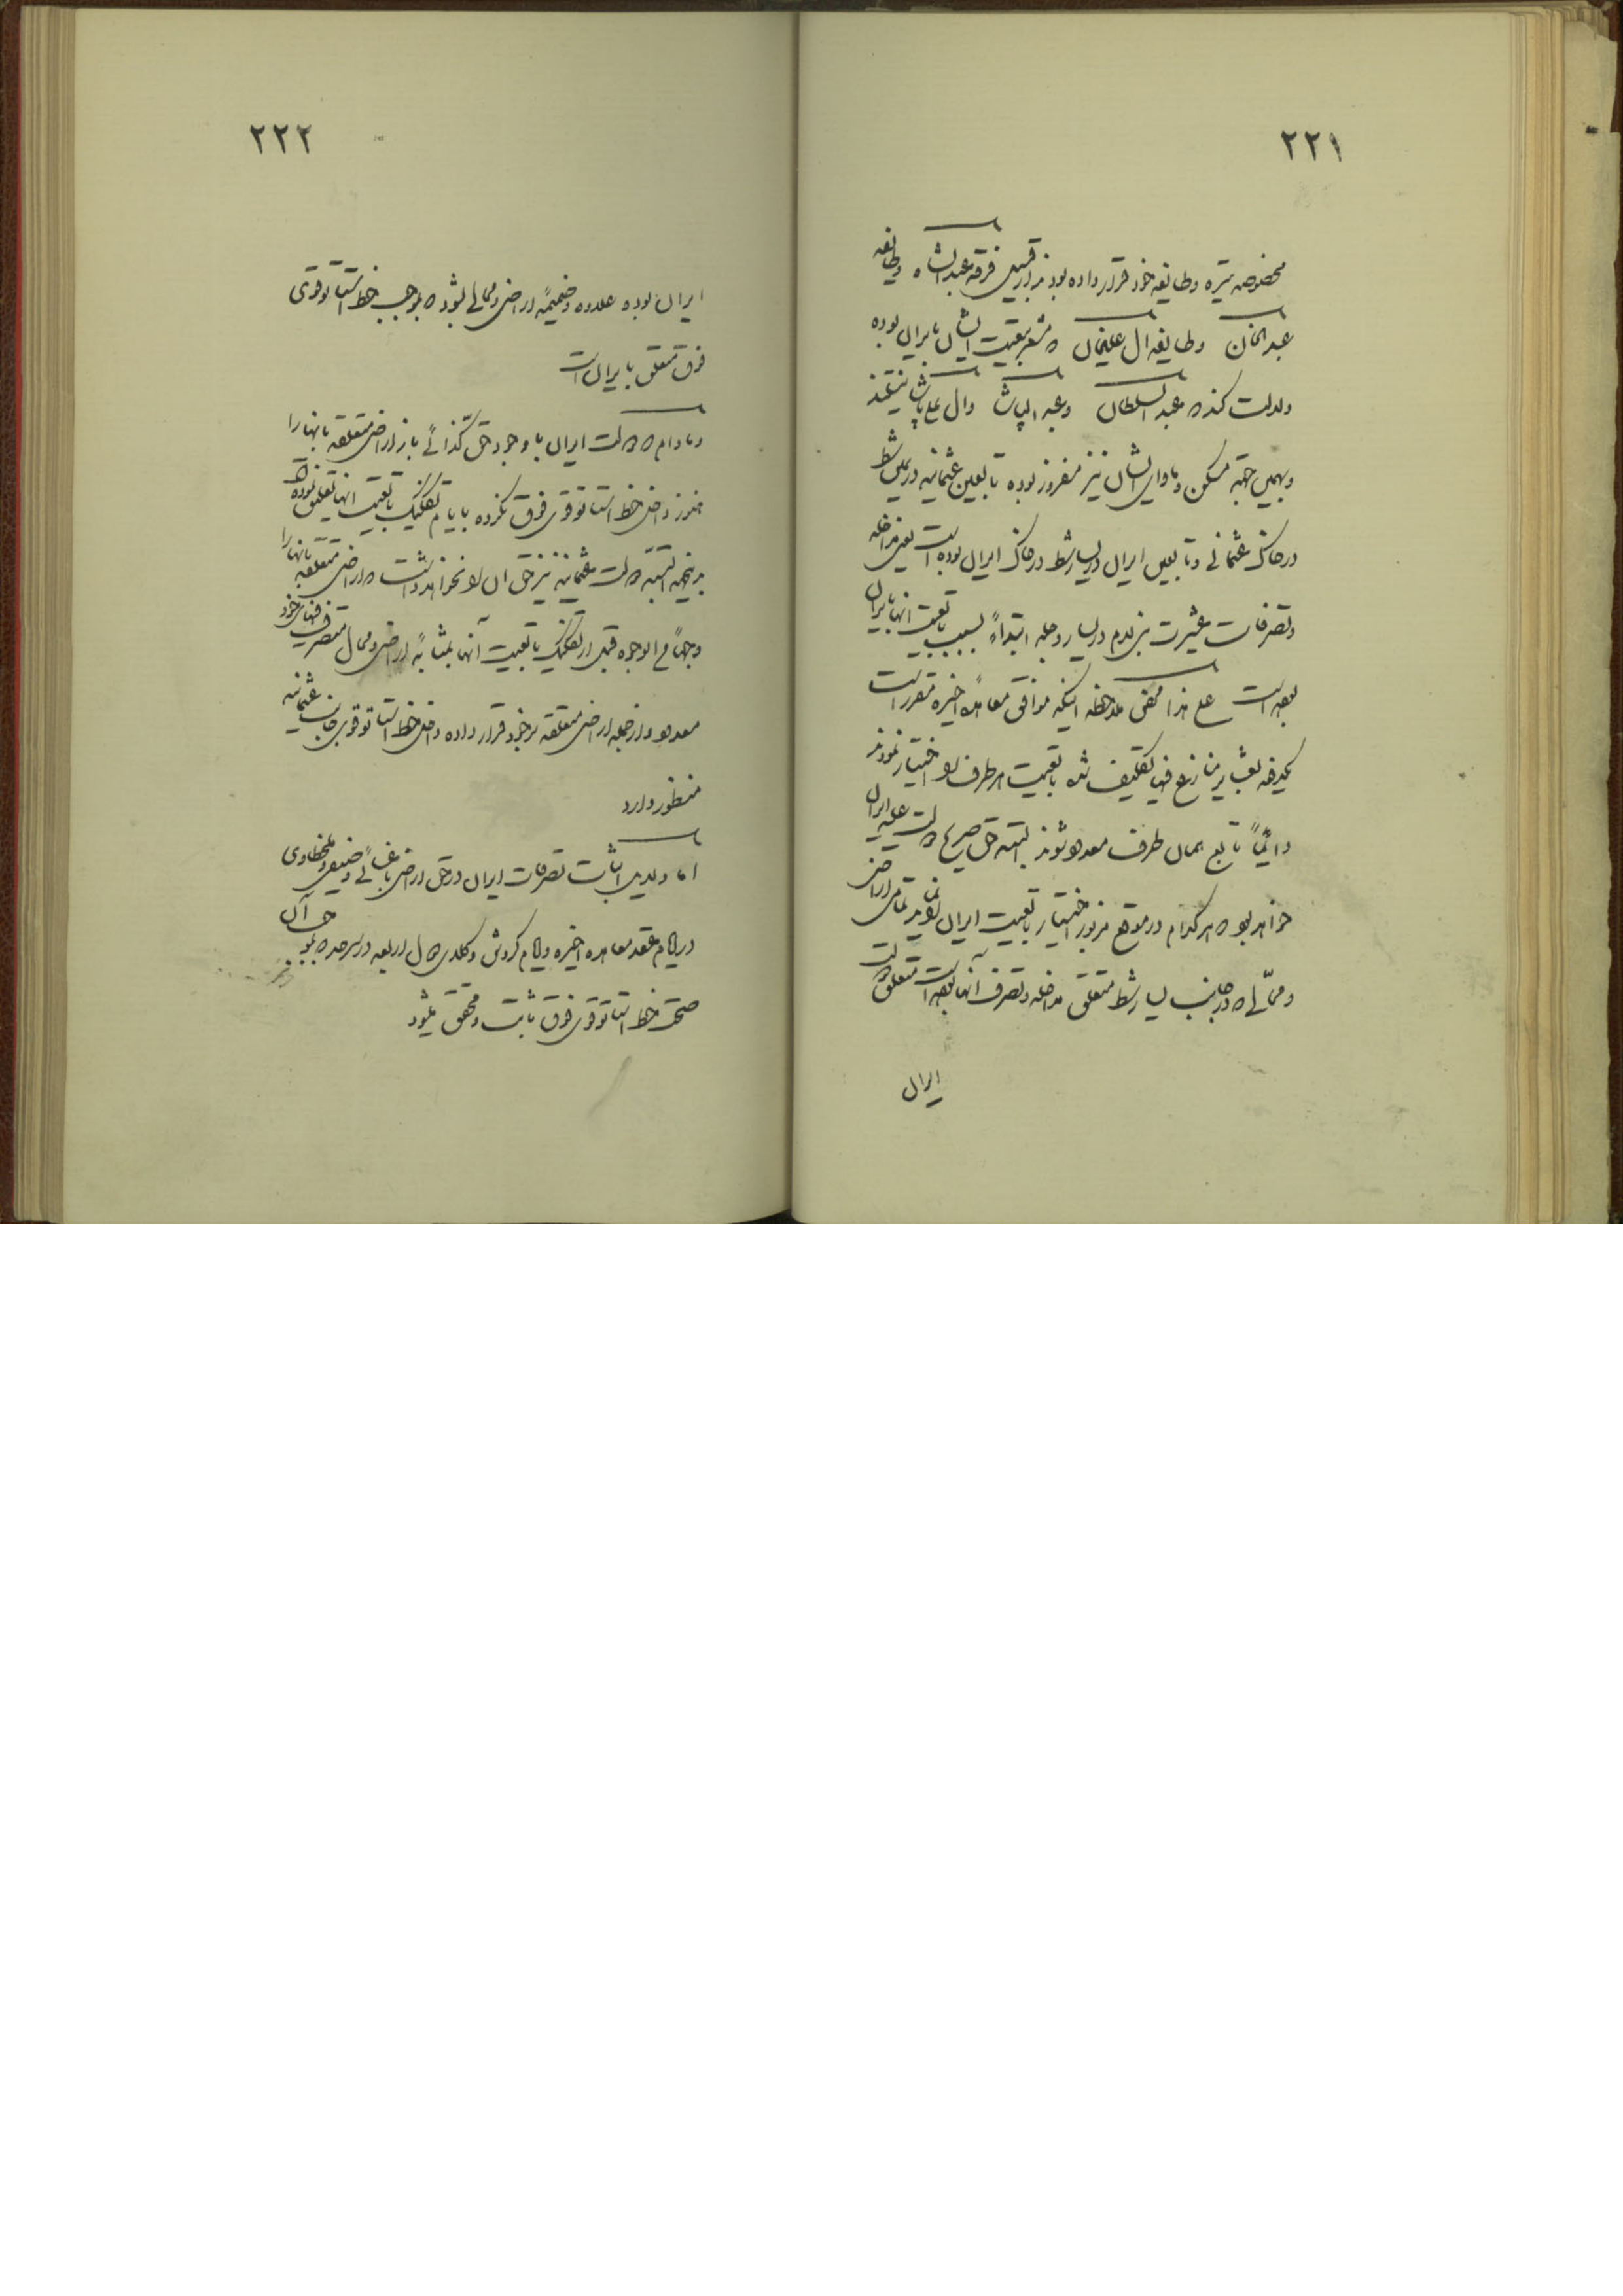 ٢٢١
مخصوصه تیره و طایفه خود قرار داده بودند از قبیل فرقه عبدالشاه و طایفه
عبدالخان و طایفه ال علیخان که مشعر بتبعیت ایشان بایران بوده
دلالت کند که عبدالسلطان و عبدالپاشا و ال علی پاشا نیستند
و بهمین جهة مسکن و ماوای ایشان نیز مفروز بوده تابعین عثمانیه در یمین شط
در خاک عثمانی و تابعین ایران در یسار شط در خاک ایران بوده است یعنی مداخله
و تصرفات عشیرت بنی لام در یسار دجله ابتداءً بسبب تابعیت آنها بایران
بوده است علی هذا محض ملاحظه اینکه موافق معاهده اخیره مقرر است
یکدفعه عشایر متنازع فیها تکلیف شده تابعیت هر طرف را اختیار نمودند
دائماً تابع همان طرف معدود شوند البته حق صریح دولت علیه ایران
خواهد بود که هر کدام در موقع مزبور اختیار تابعیت ایران نمایند تمامی اراضی
و محالی که در جانب یسار شط متعلق مداخله و تصرف آنها بوده است متعلق دولت
ایران
٢٢٢
ایران بوده علاوه و ضمیمه اراضی و محالی بشود که بموجب خط استاتوقوی
فوق متعلق بایران است
و مادام که دولت ایران با وجود حق کذائی باز اراضی متعلقه بآنها را
هنوز داخل خط استاتوقوی فوق نکرده بایام تکلیف تابعیت آنها تعلیق نموده
در اینصورت البته دولت عثمانیه نیز حق آن را نخواهد داشت که اراضی متعلقه بآنها را
وجهاً من الوجوه قبل از تکلیف تابعیت آنها بمثابه اراضی و محال متصرف فیهای خود
معدود و از جمله اراضی متعلقه بر خود قرار داده داخل خط استاتوقوی جانب عثمانیه
منظور دارد
اما دلایل اثبات تصرفات ایران در حق اراضی باغسائی و
در ایام عقد معاهده اخیره و ایام گردش وکلای دول اربعه در سرحد که بموجب آن
صحت خط استاتوقوی فوق ثابت و محقق میشود